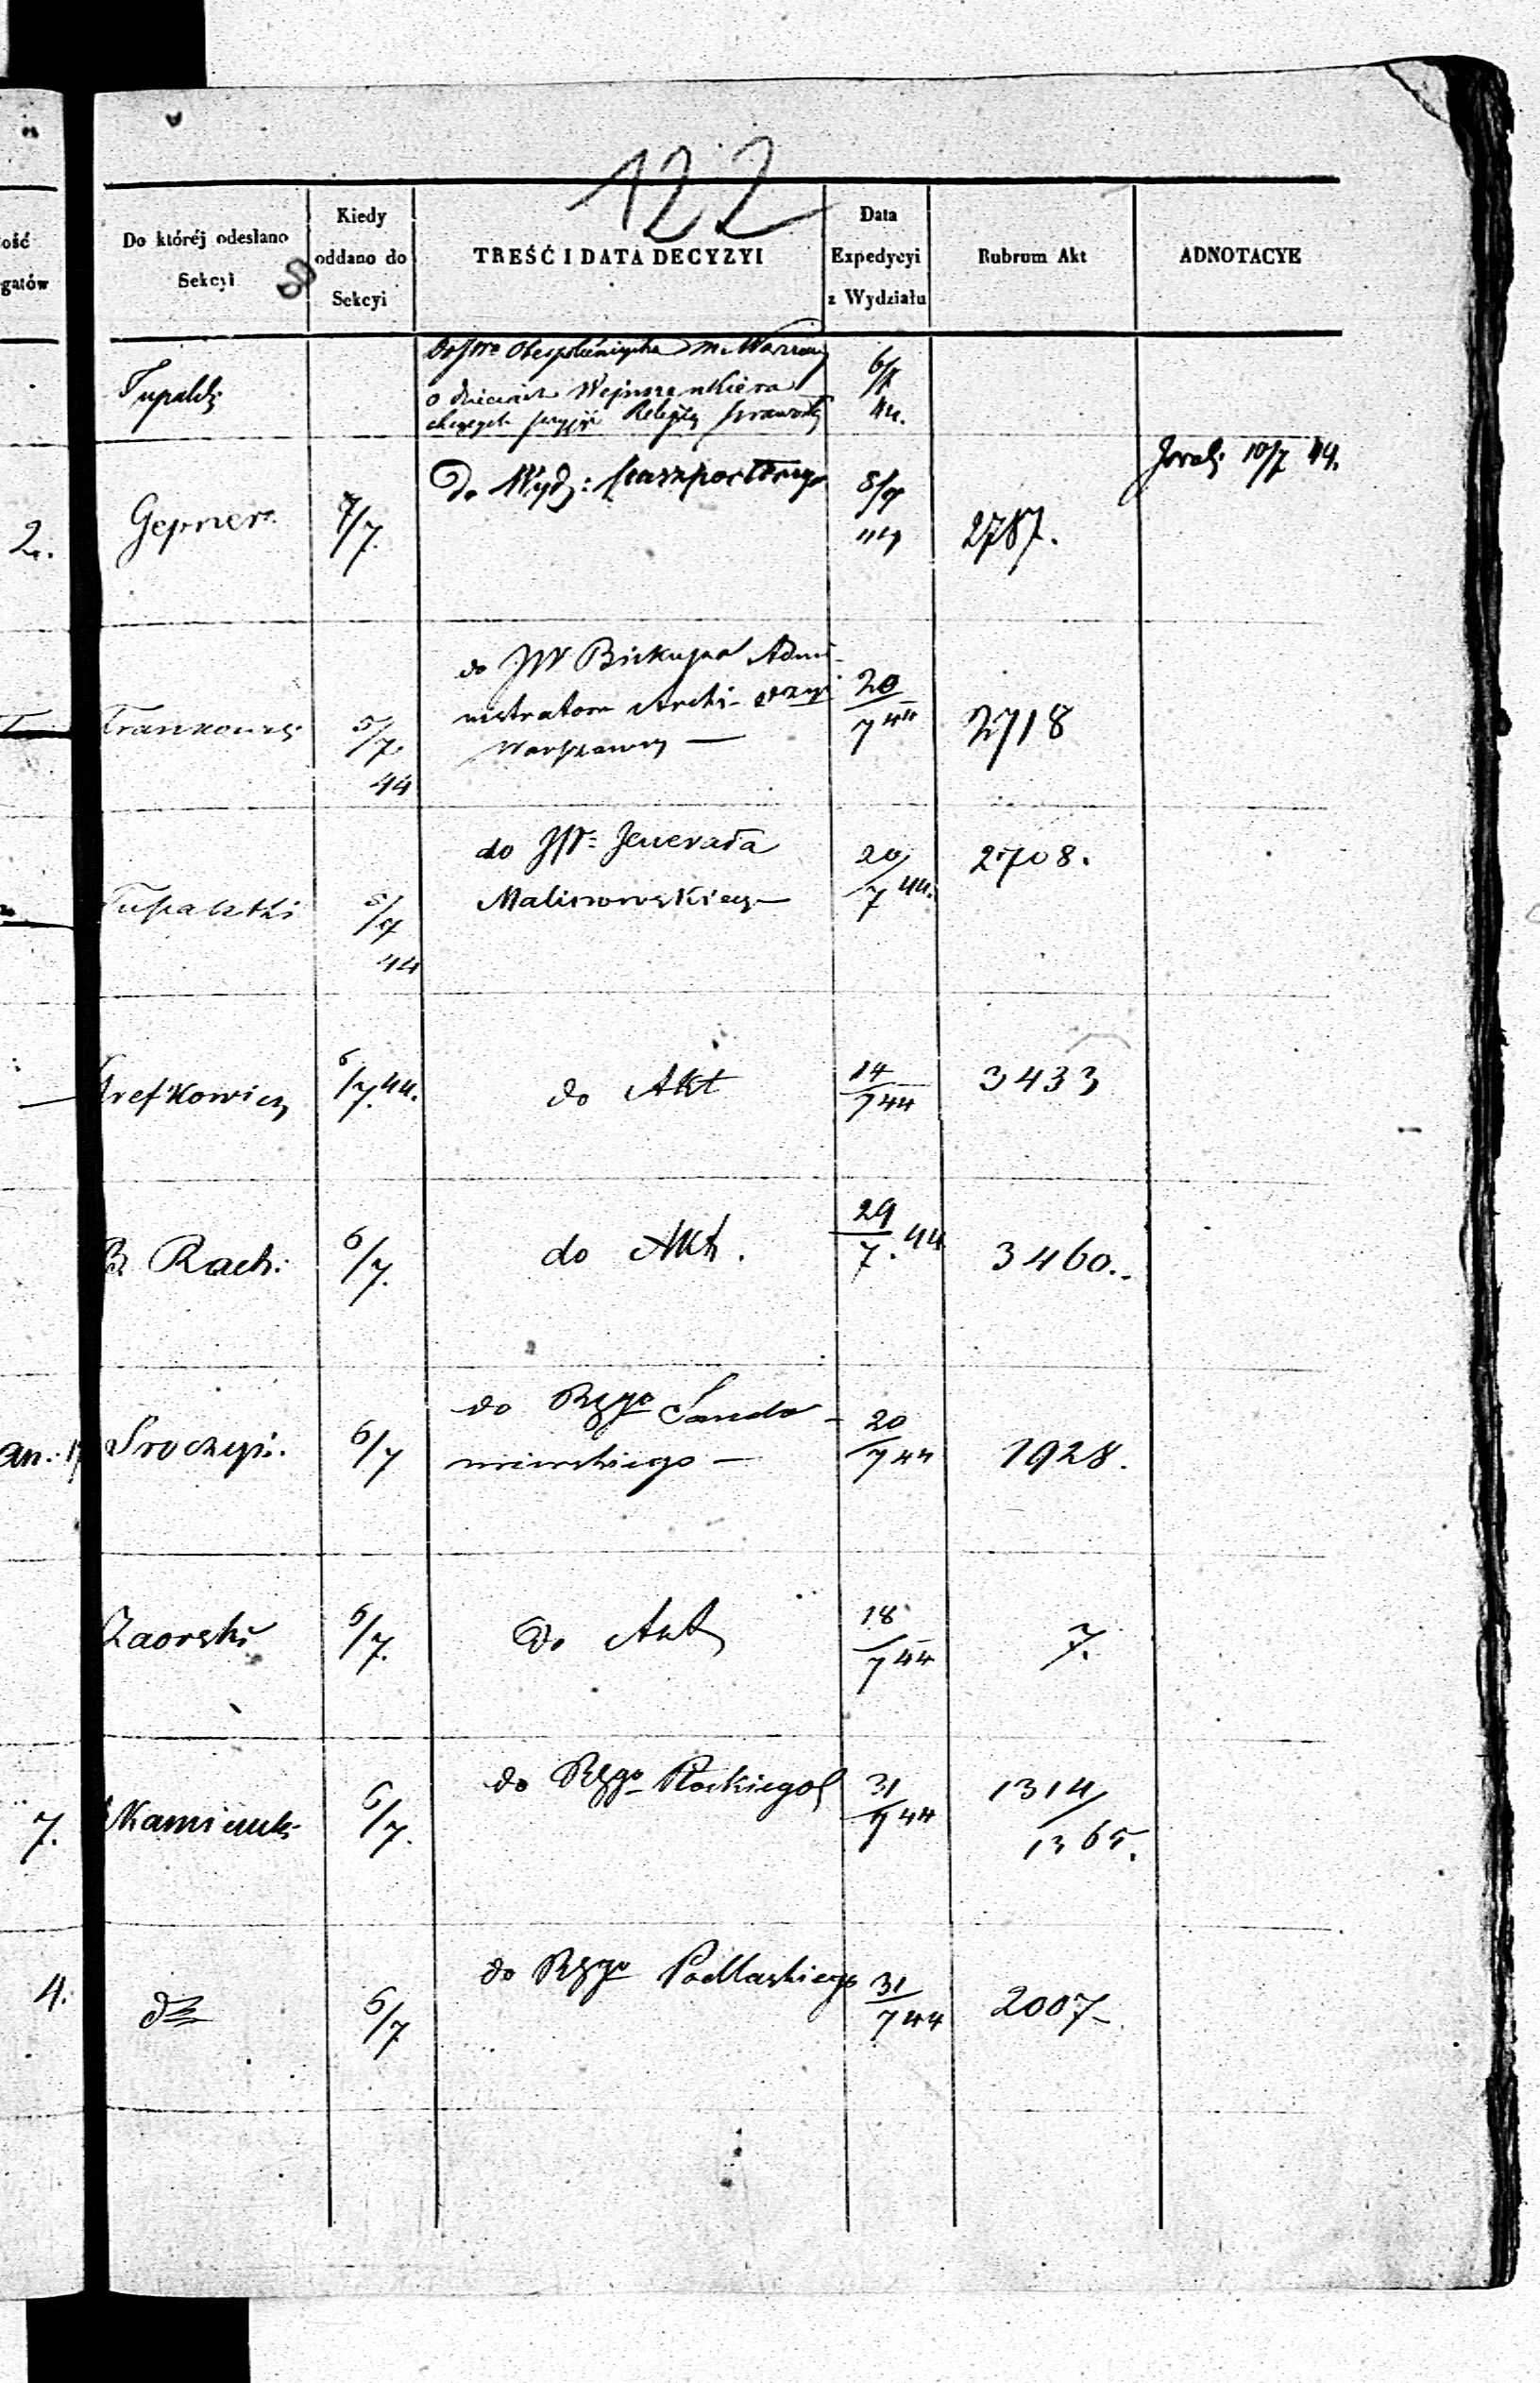 122
ość
gatów
Do któréj odesłano
Sekcyi
Kiedy
oddano do
Sekcyi
TREŚĆ I DATA DECYZYI
Data
Expedycyi
z Wydziału
Rubrum Akt
ADNOTACYE
Tupalski
o dzieciach
6/7
44.
2.
Gepner
7/7.
Do Wydz: Paszportowego
8/7
44
2787.
10/7 44.
Frankowski
5/7.
44
do JW Biskupa Admi-
nistratora Archi-
Warszawy —
20/7 44
2718
Tupalski
5/7
44
do JW. Jenerała
Malinowskiego
20/7 44.
2708.
6/7. 44.
do Akt
14/7 44
3433
Rach:
6/7.
do Akt.
29/7. 44
3460.
Sroczyń.
6/7
do Rzgo Sando-
mierskiego —
20/7 44
1928.
Zaorski
6/7.
Do Akt
18/7 44
7.
7.
Kamieński
6/7.
do Rzgo Płockiego
31/7 44
1314/
1365.
4.
do
6/7
do Rzgo Podlaskiego
31/7 44
2007